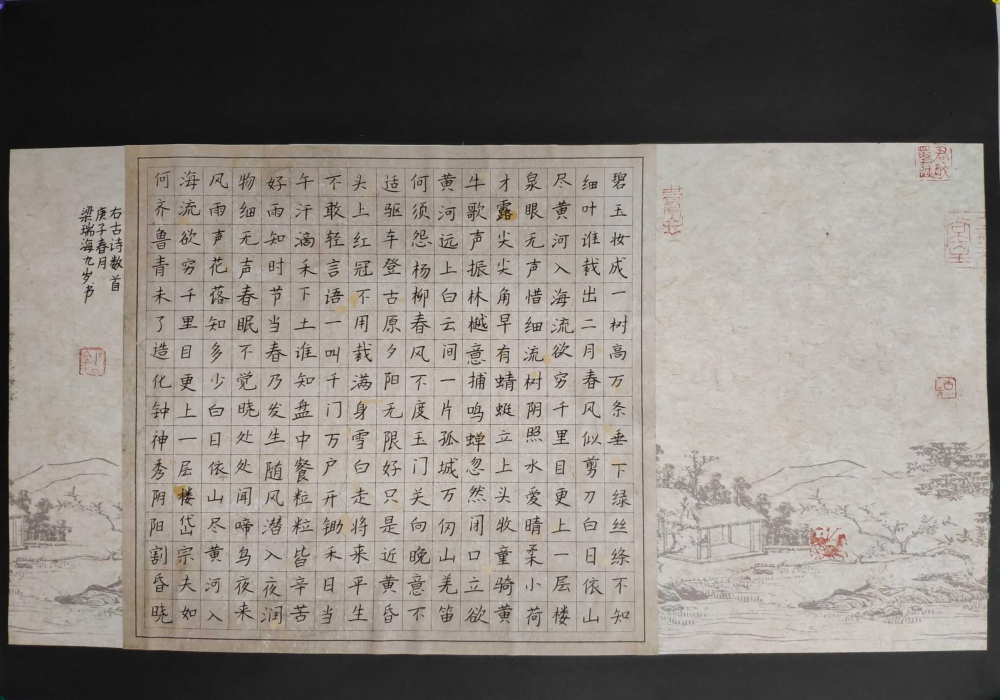 碧玉妆成一树高万条垂下绿丝绦不知
细叶谁裁出二月春风似剪刀白日依山
尽黄河入海流欲穷千里目更上一层楼
泉眼无声惜细流树阴照水爱晴柔小荷
才露尖尖角早有蜻蜓立上头牧童骑黄
牛歌声振林樾意捕鸣蝉忽然闭口立欲
黄河远上白云间一片孤城万仞山羌笛
何须怨杨柳春风不度玉门关向晚意不
适驱车登古原夕阳无限好只是近黄昏
头上红冠不用裁满身雪白走将来平生
不敢轻言语一叫千门万户开锄禾日当
午汗滴禾下土谁知盘中餐粒粒皆辛苦
好雨知时节当春乃发生随风潜入夜润
物细无声春眠不觉晓处处闻啼鸟夜来
风雨声花落知多少白日依山尽黄河入
海流欲穷千里目更上一层楼岱宗夫如
何齐鲁青未了造化钟神秀阴阳割昏晓
右古诗数首
庚子春月
梁瑞海九岁书